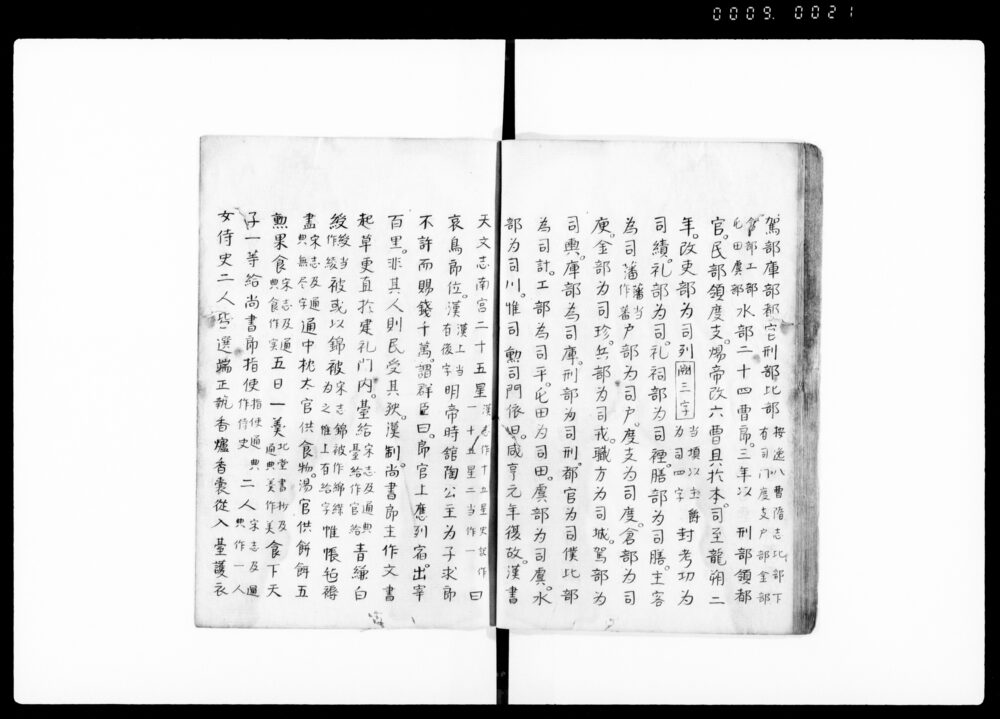 0009. 0021
駕部庫部都官刑部比部按逸八曹隋志比部下有司门度支户部金部
倉部工部屯田虞部水部二十四曹郎。三年以刑部領都
官。民部領度支。煬帝改六曹且於本司至龍朔二
年。改吏部為司列闕三字當填以主爵為司四字封考功为
司績。礼部为司。礼祠部为司禋膳部为司膳。主客
为司藩藩当作蕃户部为司户。度支为司度。倉部为司
庾。金部为司珍。兵部为司戎。職方为司城。駕部为
司輿。庫部为司庫。刑部为司刑。都官为司僕比部
為司計。工部為司平。屯田为司田。虞部为司虞。水
部为司川。惟司勲司門依旧。咸亨元年復故。漢書
天文志南宫二十五星漢志作十五星史記作一十五星二当作一曰
哀烏郎位。漢漢上当有後字明帝時館陶公主为子求郎
不許而賜錢千萬。謂群臣曰。郎官上應列宿。出宰
百里。非其人則民受其殃。漢制尚書郎主作文書
起草更直於建礼门内。臺給宋志及通典臺給作官給青縑白
綾綾当作綾被或以錦被宋志錦被作綿繂为之惟上有给字惟帳毡褥
畫宋志及通典無尽字通中枕太官供食物。湯官供餅餌五
勲果食宋志及通典食作実五日一美北堂書抄及通典美作美食下天
子一等給尚書郎指使指使通典作侍史二人宋志及通典作一人
女侍史二人皆選端正執香爐香囊從入臺護衣